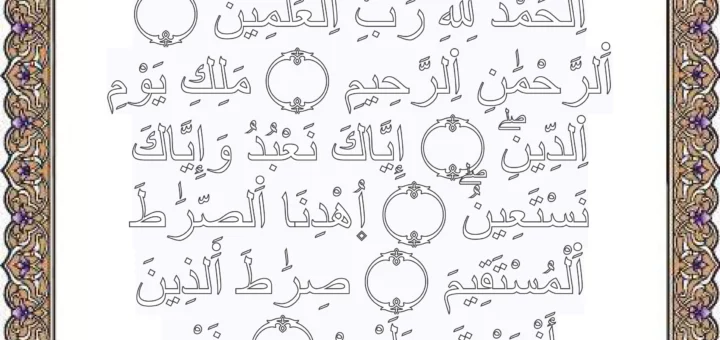 اِ۬لْحَمْدُ لِلهِ رَبِّ اِ۬لْعَٰلَمِينَ
اَ۬لرَّحْمَٰنِ اِ۬لرَّحِيمِ مَلِكِ يَوْمِ
اِ۬لدِّينِۖ إِيَّاكَ نَعْبُدُ وَإِيَّاكَ
نَسْتَعِينُۖ اُ۪هْدِنَا اَ۬لصِّرَٰطَ
اَ۬لْمُسْتَقِيمَ صِرَٰطَ اَ۬لذِينَ